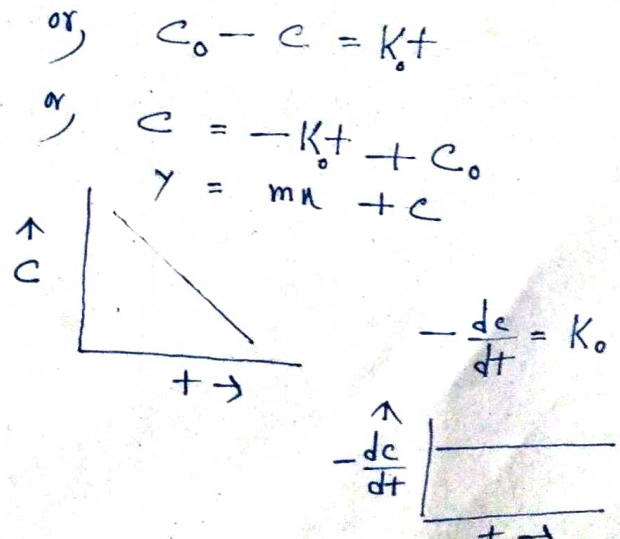 or, C₀ - C = K₀t
or, C = -K₀t + C₀
y = mx + c
↑
C
t →
-dc/dt = K₀
↑
-dc/dt
t →